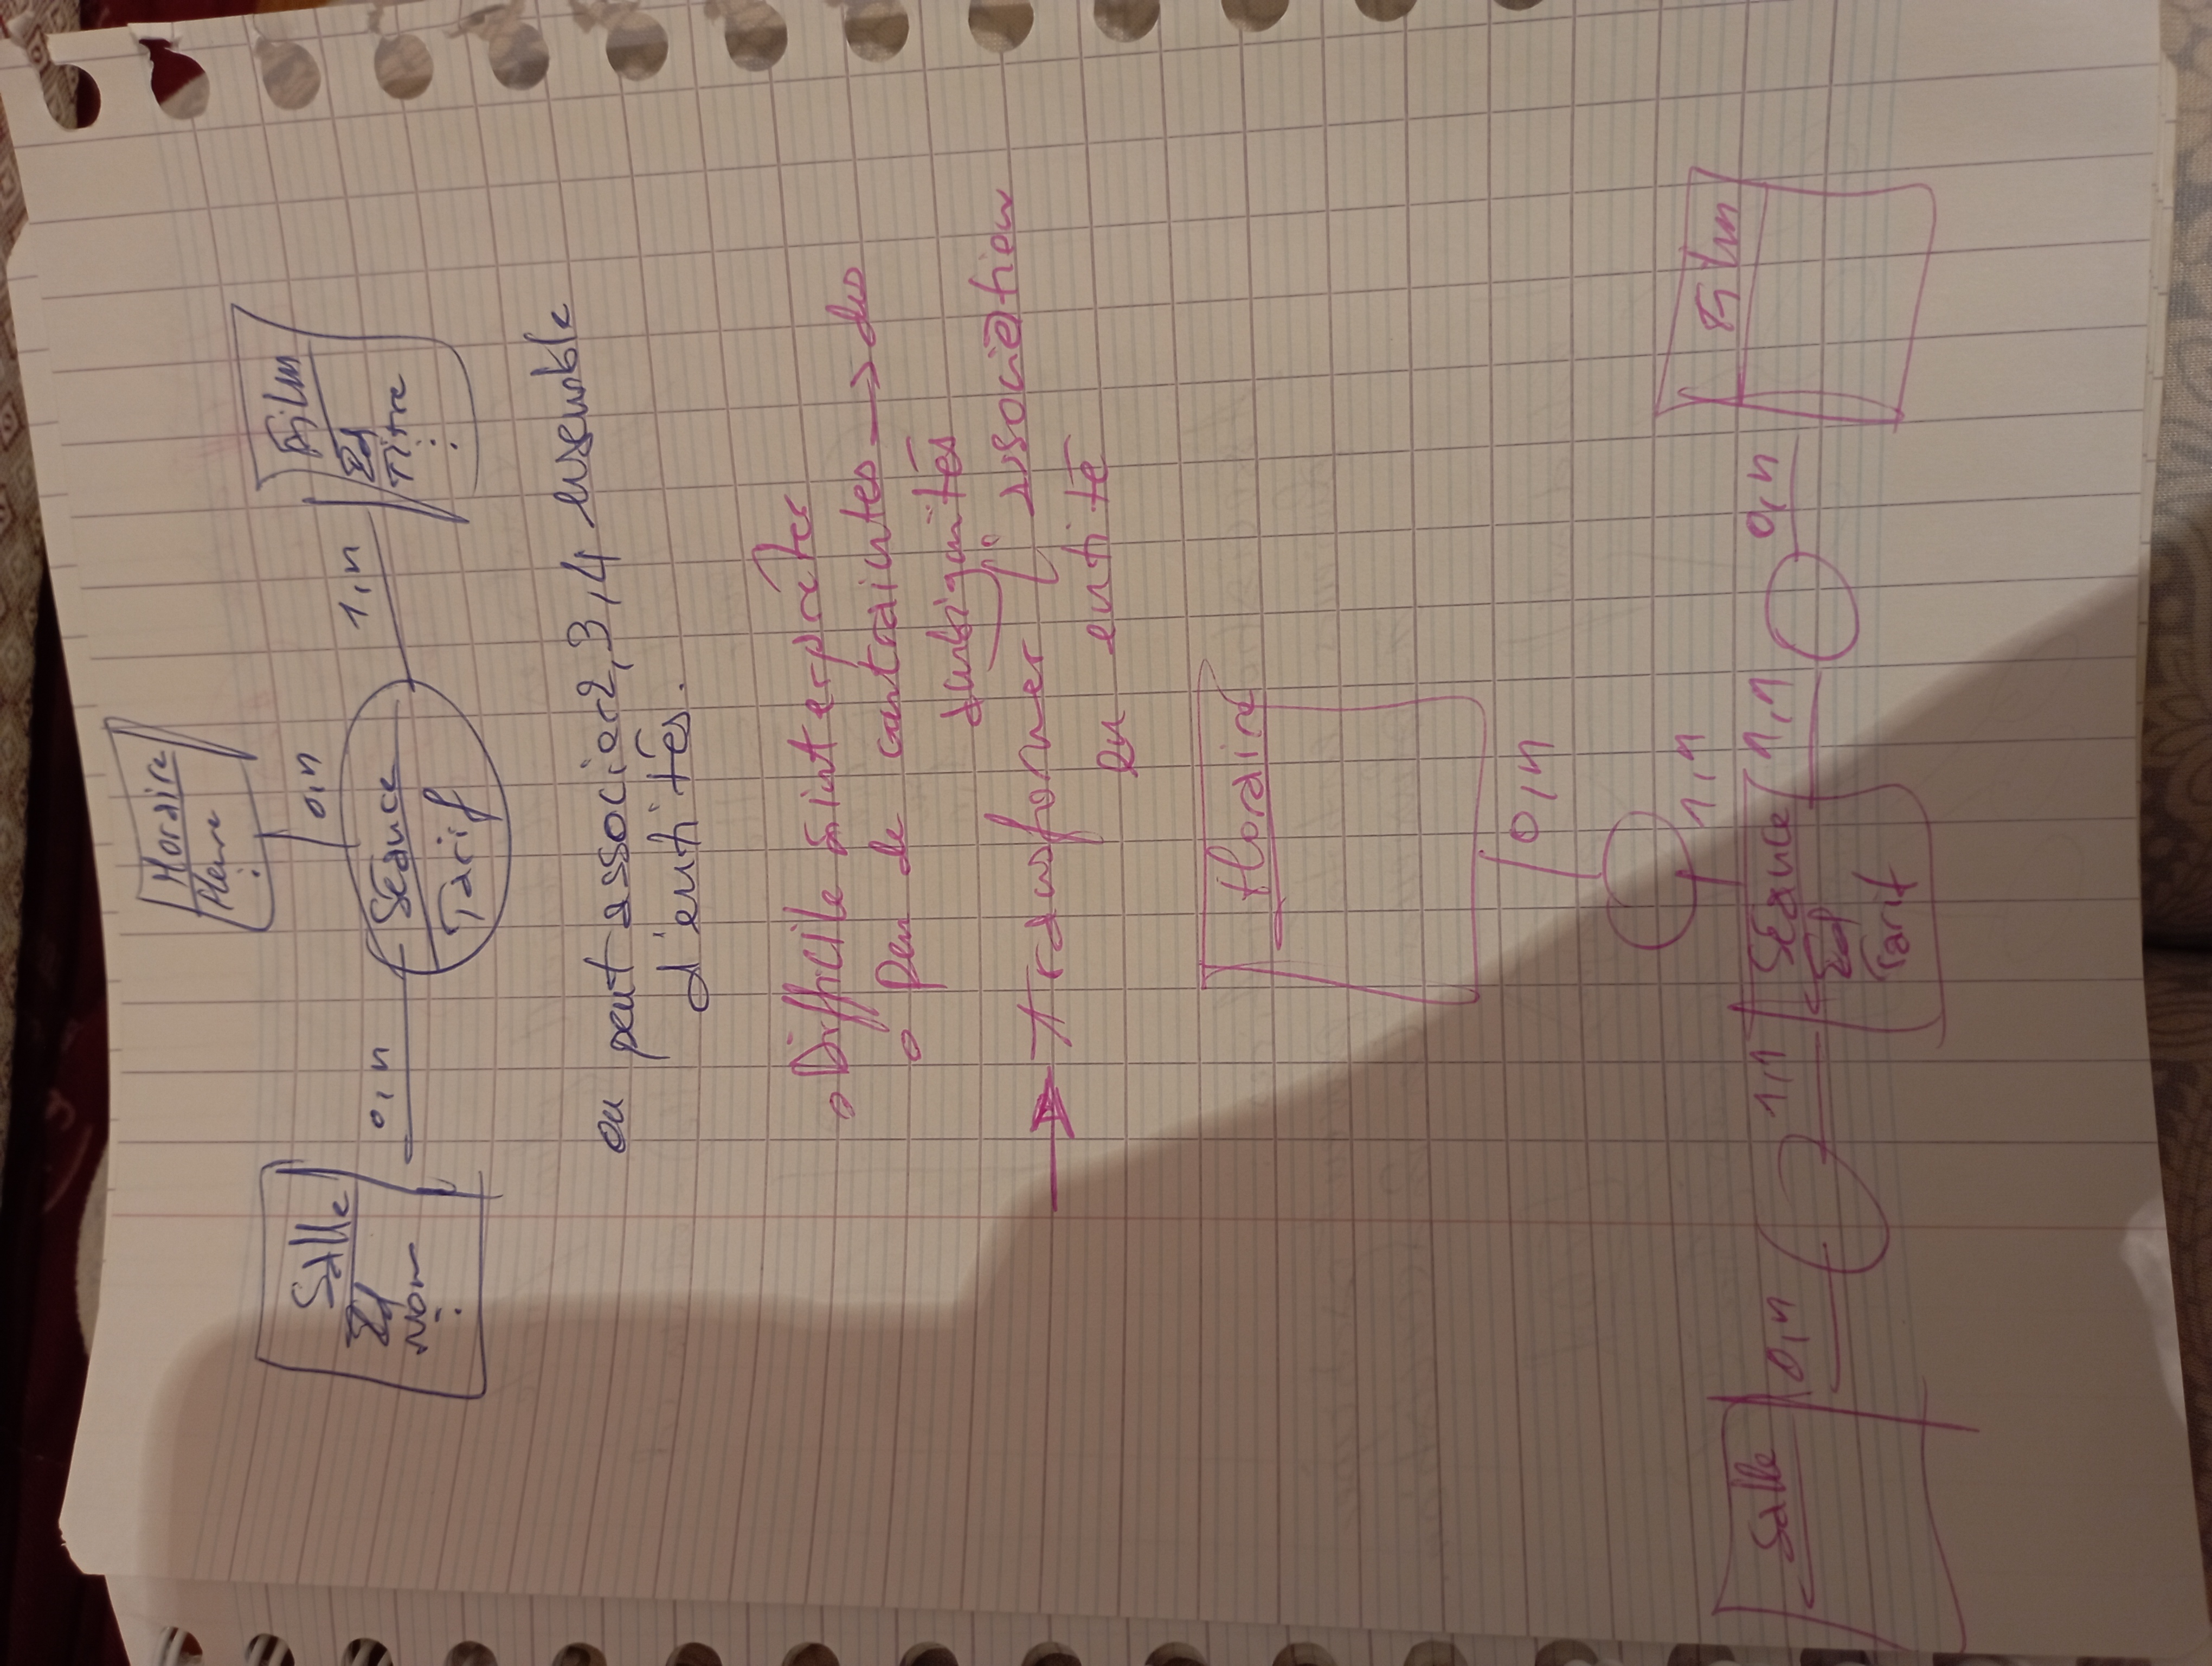 Horaire
Heure
Salle
Id
Nom
0,n
0,n
Séance
Tarif
1,n
Film
Id
Titre
on peut associer 2, 3, 4 ensemble
d'entités.
o Difficile à interpréter
o Peu de contraintes → des
ambiguités
→ transformer l'association
en entité
Horaire
0,n
1,n
Salle
0,n
1,1
Séance
Id
Tarif
1,1
0,n
Film